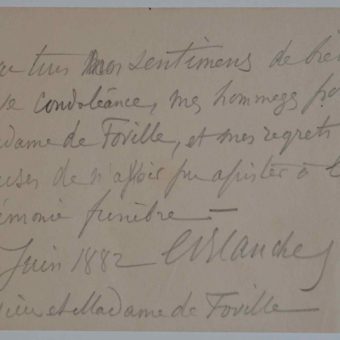 tous mes sentimens de
condoléance, mes hommages
adame de Foville, et mes regrets
de n'avoir pu assister à l
émonie funèbre —
Juin 1882 E Blanche
et Madame de Foville